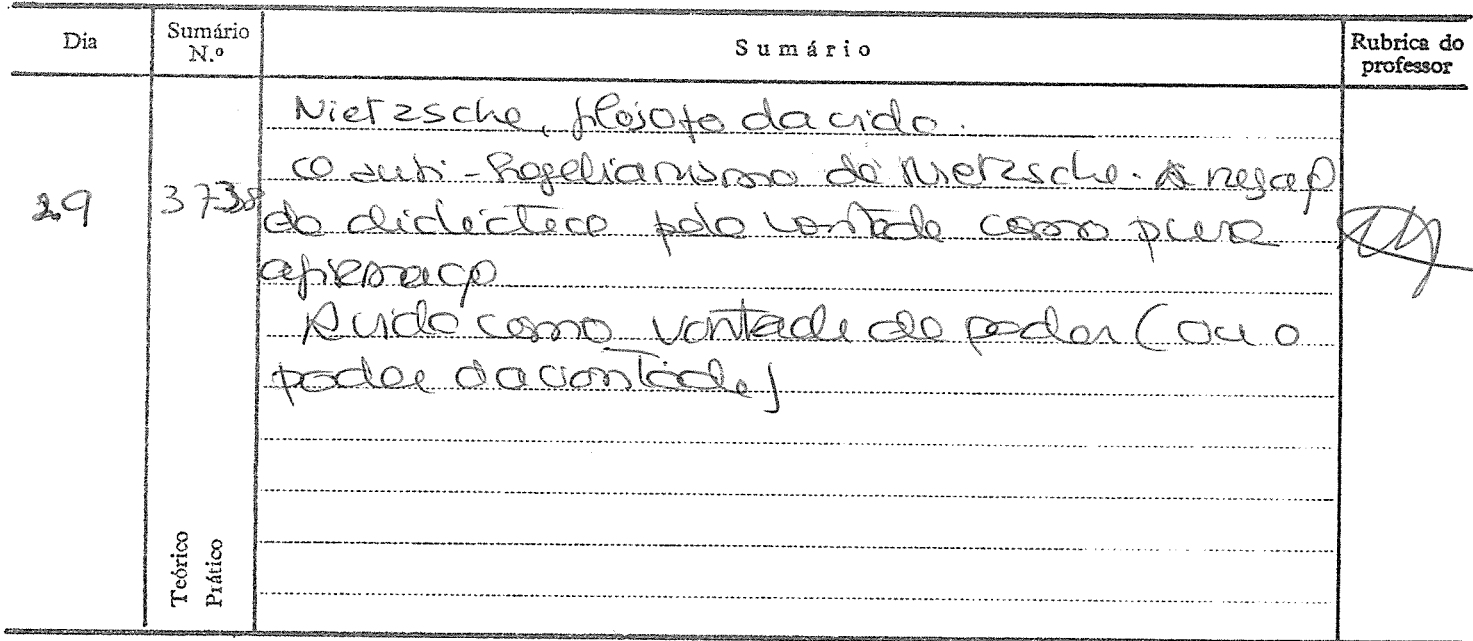 Dia
Sumário N.º
Sumário
Rubrica do professor
29
37 38
Nietzsche, filósofo da vida.
O anti-hegelianismo de Nietzsche. A negação
da dialéctica pela vontade como pura
afirmação
A vida como vontade de poder (ou o
poder da vontade)
Teórico
Prático